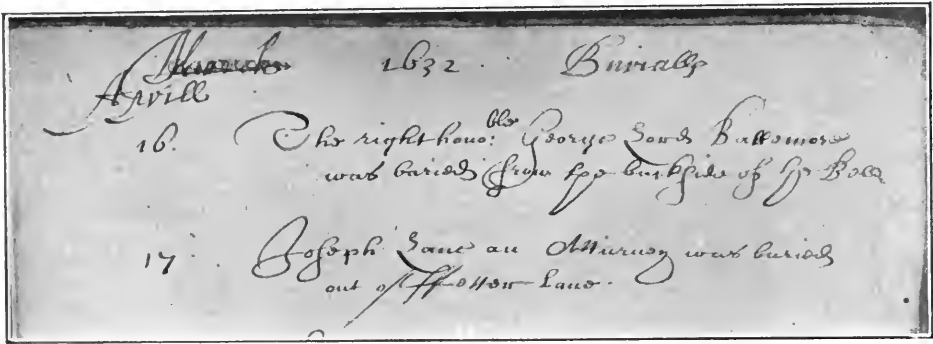 March 1632 Burialls
Aprill
16. The right hono:ble George Lord Baltemore
was buried from the backside of the Bell
17 Joseph Lane an Atturney was buried
out of ffetter Lane.